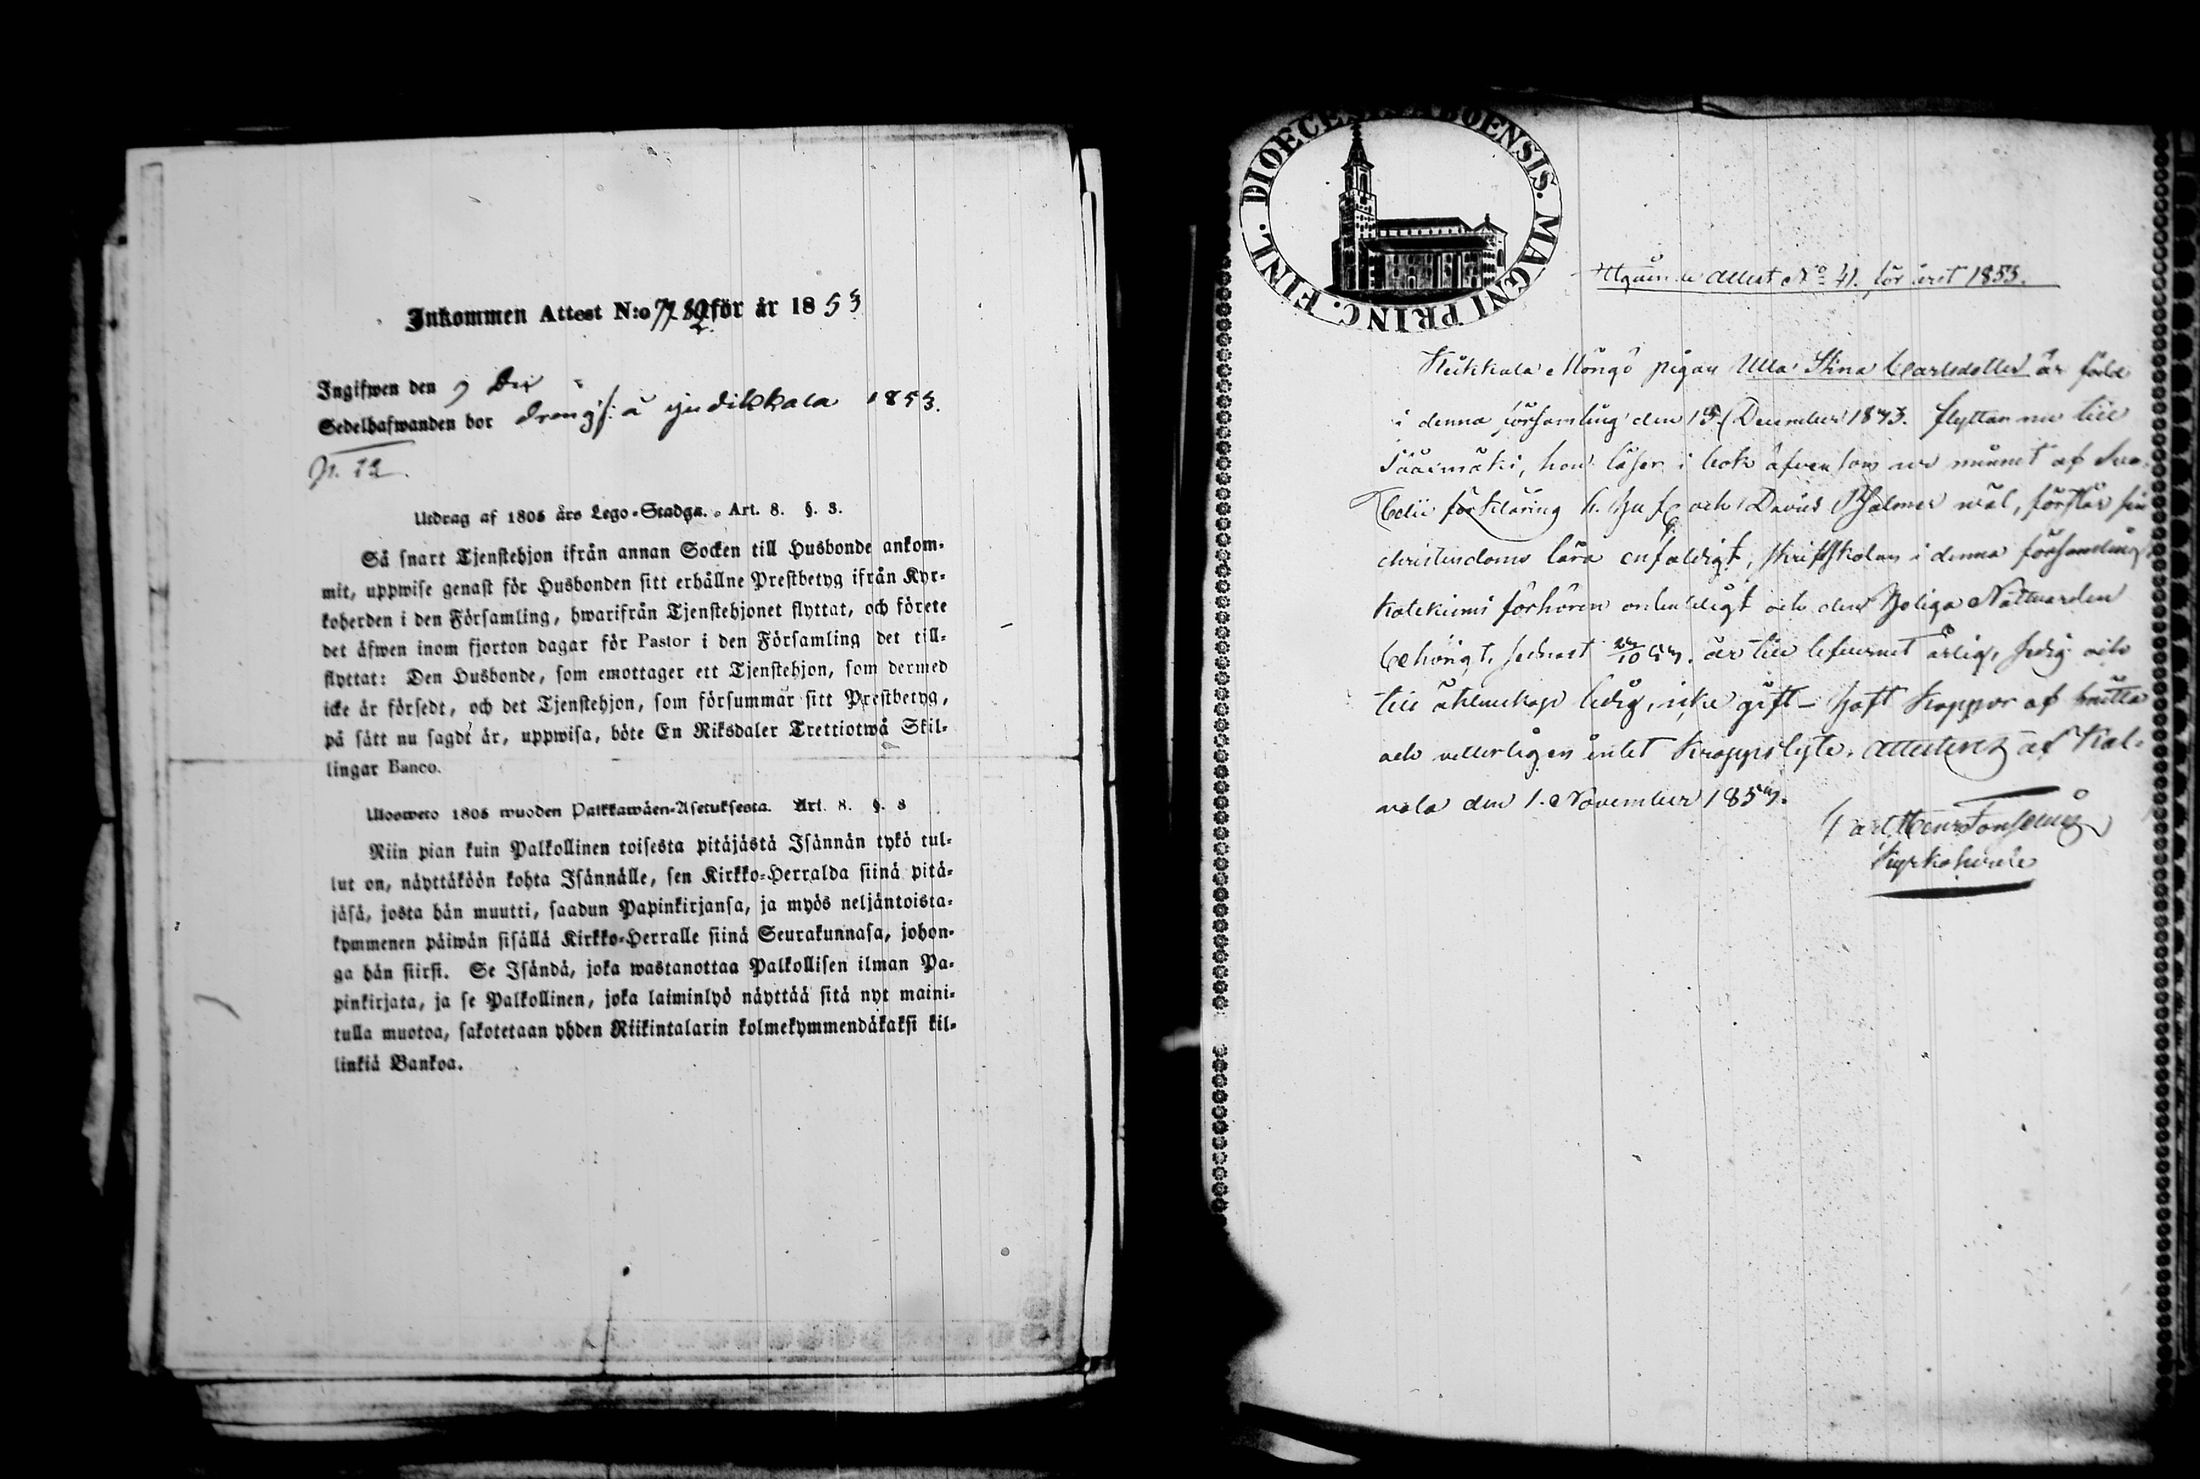 Inkommen Attest N:o för år 1853
Ingifwen den 9 Dec
Sedelhafwanden bor dräng å Judikkala 1853.
Utdrag af 1805 års Lego-Stadga. Art. 8. §. 3.
Så snart Tjenstehjon ifrån annan Socken till Husbonde ankom-
mit, uppwise genast för Husbonden sitt erhållne Prestbetyg ifrån Kyr-
koherden i den Församling, hwarifrån Tjenstehjonet flyttat, och förete
det äfwen inom fjorton dagar för Pastor i den Församling det till-
flyttat: Den Husbonde, som emottager ett Tjenstehjon, som dermed
icke är försedt, och det Tjenstehjon, som försummar sitt Prestbetyg,
på sätt nu sagdt är, uppwisa, böte En Riksdaler Trettiotwå Skil-
lingar Banco.
Ulosweto 1805 wuoden Palkkawäen-Asetuksesta. Art. 8. §. 3
Niin pian kuin Palkollinen toisesta pitäjästä Isännän tykö tul-
lut on, näyttäköön kohta Isännälle, sen Kirkko-Herralda siinä pitä-
jäsä, josta hän muutti, saadun Papinkirjansa, ja myös neljäntoista-
kymmenen päiwän sisällä Kirkko-Herralle siinä Seurakunnasa, johon-
ga hän siirsi. Se Isändä, joka wastanottaa Palkollisen ilman Pa-
pinkirjata, ja se Palkollinen, joka laiminlyö näyttää sitä nyt maini-
tulla muotoa, sakotetaan yhden Riikintalarin kolmekymmendäkaksi kil-
linkiä Bankoa.
FINL. DIOECESIS ABOENSIS. MAGNI PRINC.
Utgående Attest No 41. för året 1853.
Heikkala Möngö pigan Ulla Stina Carlsdotter är född
i denna församling den December flyttar nu till
Sääxmäki, hon läser i bok äfvensom ur minnet af Sve-
belii förklaring och Davids Psalmer väl, förstår sin
christendoms lära enfaldigt, skriftskolan i denna församling
Katekismi förhören och den Heliga Nattvarden
begått, sednast är till lefvernet ärlig, sedig och
till äktenskap ledig, icke gift – haft koppor af smitta
och veterligen intet kroppslyte. Attesterez af Kal-
vola den 1. November 1853.
Carl Henr
Kyrkoherde